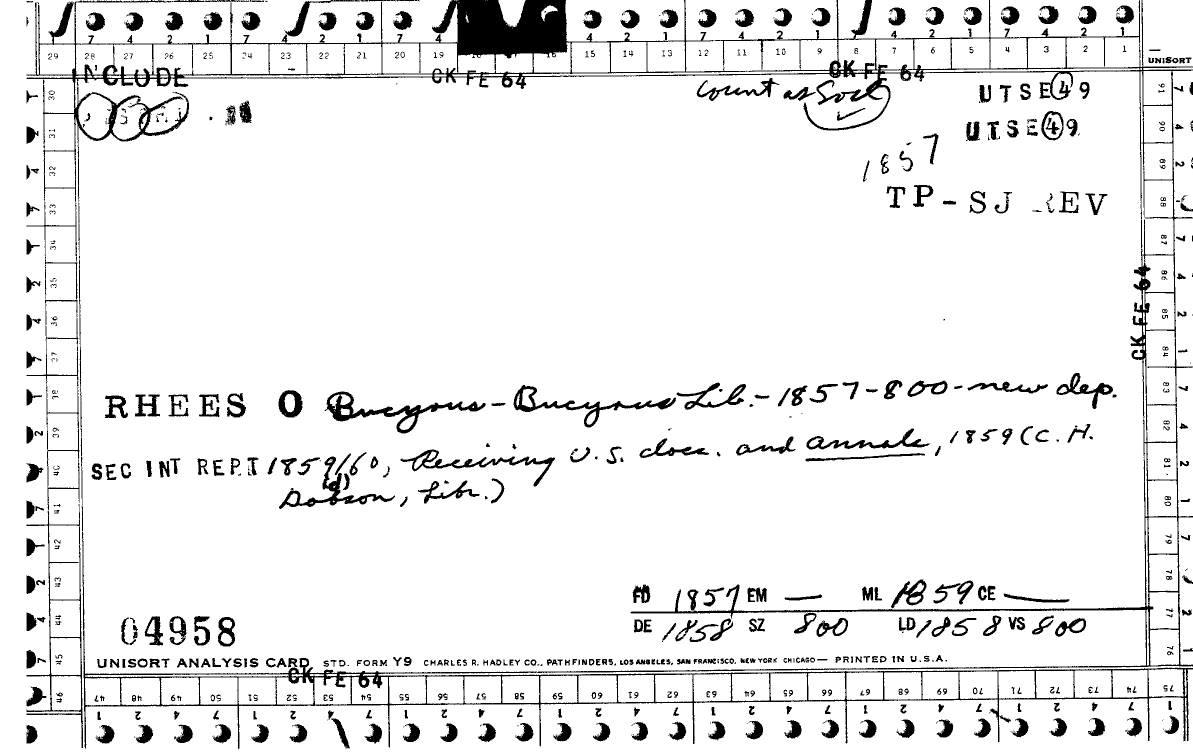 7 4 2 1 7 4 2 1 7 4 2 1 7 4 2 1 7 4 2 1
29 28 27 26 25 24 23 22 21 20 19 18 17 16 15 14 13 12 11 10 9 8 7 6 5 4 3 2 1
UNISORT
INCLUDE
CK FE 64
CK FE 64
Count as Socl ✓
UTSE49
UTSE49
1857
TP-SJ REV
CK FE 64
RHEES O Bucyrous - Bucyrus Lib. - 1857 - 800 - new dep.
SEC INT REPT 1859/60, Receiving U.S. docs. and annals, 1859 (C. H.
(d)
Dobson, Libr.)
FD 1857 EM — ML 1859 CE —
DE 1858 SZ 800 LD 1858 VS 800
04958
UNISORT ANALYSIS CARD STD. FORM Y9 CHARLES R. HADLEY CO., PATHFINDERS, LOS ANGELES, SAN FRANCISCO, NEW YORK CHICAGO — PRINTED IN U.S.A.
CK FE 64
30 31 32 33 34 35 36 37 38 39 40 41 42 43 44 45 46
47 48 49 50 51 52 53 54 55 56 57 58 59 60 61 62 63 64 65 66 67 68 69 70 71 72 73 74 75
91 90 89 88 87 86 85 84 83 82 81 80 79 78 77 76